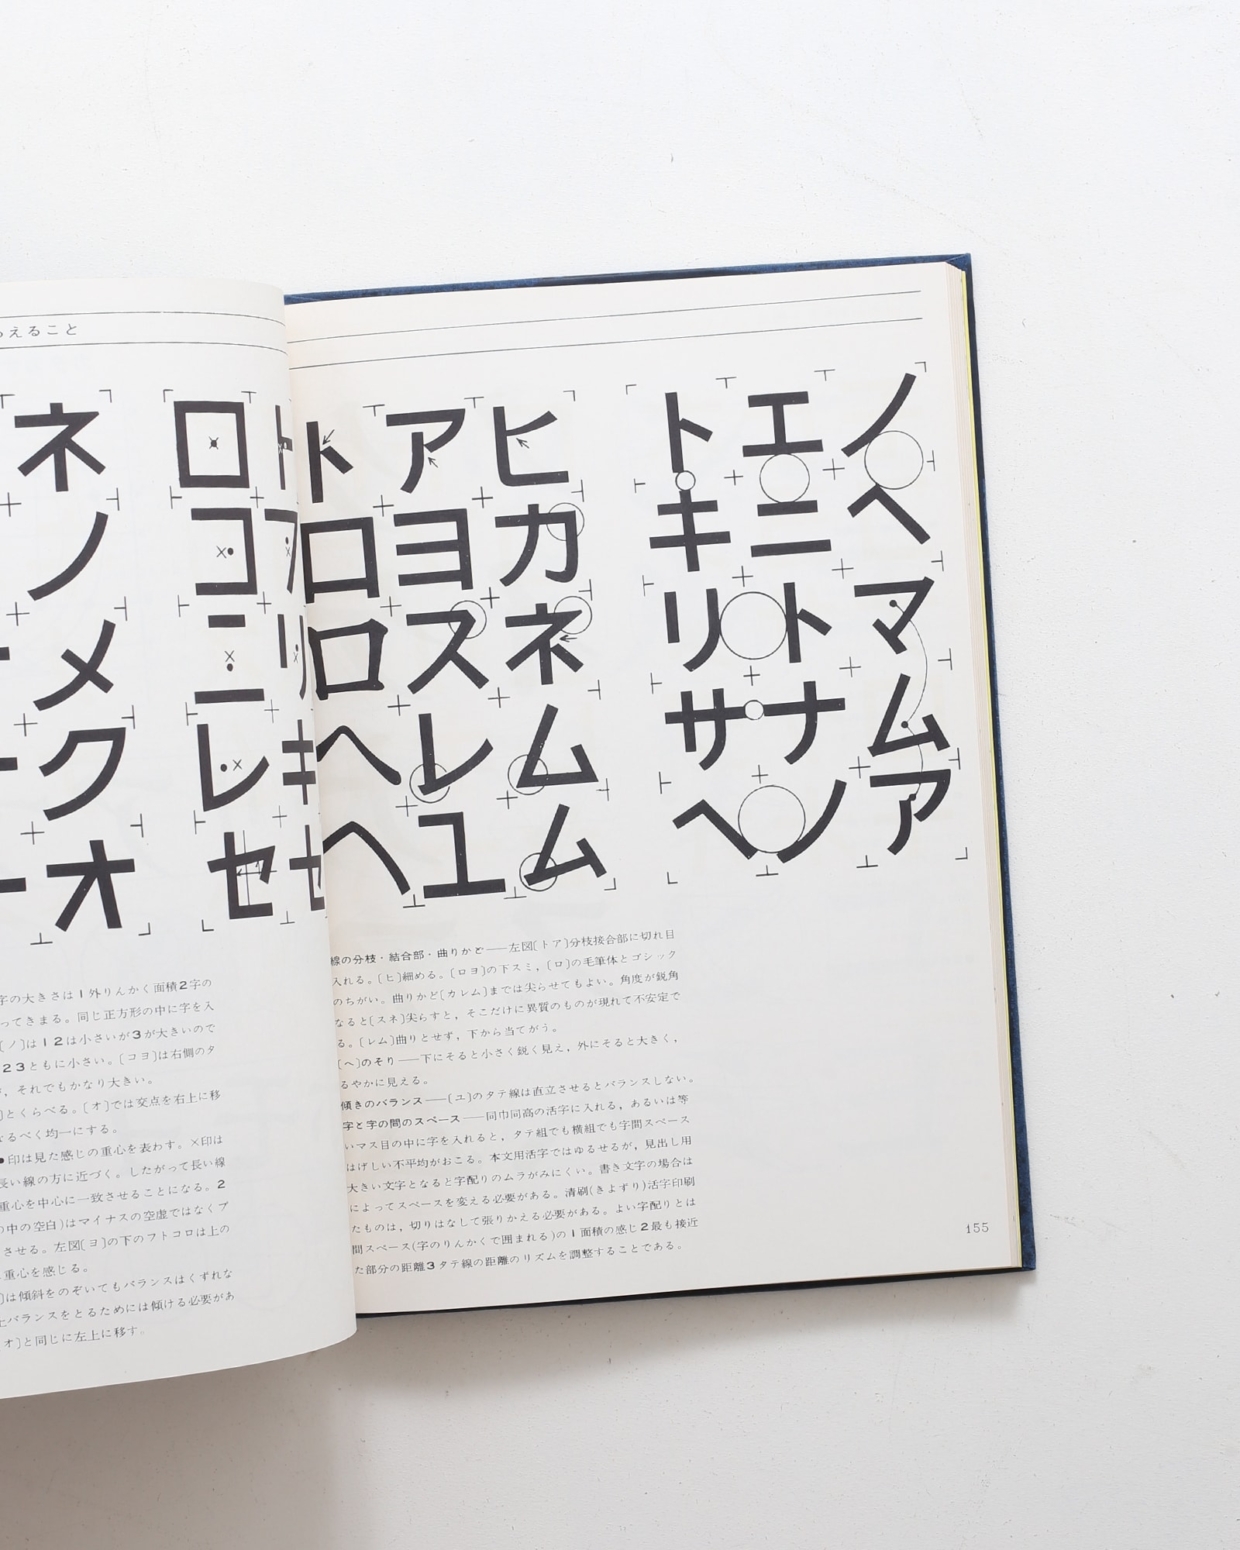 えること
ネ ロ
ノ コ
メ ニ リ
ク レ キ
オ セ セ
字の大きさは1外りんかく面積2字の
ってきまる。同じ正方形の中に字を入
〔ノ〕は12は小さいが3が大きいので
23ともに小さい。〔コヨ〕は右側のタ
、それでもかなり大きい。
〕とくらべる。〔オ〕では交点を右上に移
なるべく均一にする。
●印は見た感じの重心を表わす。×印は
長い線の方に近づく。したがって長い線
重心を中心に一致させることになる。2
の中の空白)はマイナスの空虚ではなくプ
させる。左図〔ヨ〕の下のフトコロは上の
重心を感じる。
〕は傾斜をのぞいてもバランスはくずれな
バランスをとるためには傾ける必要があ
オ〕と同じに左上に移す。
ト ア ヒ ト エ ノ
ロ ヨ カ キ ニ ヘ
ロ ス ネ リ ト マ
ヘ レ ム サ ナ ム
ヘ ユ ム ヘ ノ ア
線の分枝・結合部・曲りかど——左図〔トア〕分枝接合部に切れ目
入れる。〔ヒ〕細める。〔ロヨ〕の下スミ，〔ロ〕の毛筆体とゴシック
のちがい。曲りかど〔カレム〕までは尖らせてもよい。角度が鋭角
なると〔スネ〕尖らすと，そこだけに異質のものが現れて不安定で
る。〔レム〕曲りとせず，下から当てがう。
〔ヘ〕のそり——下にそると小さく鋭く見え，外にそると大きく，
るやかに見える。
傾きのバランス——〔ユ〕のタテ線は直立させるとバランスしない。
字と字の間のスペース——同巾同高の活字に入れる，あるいは等
いマス目の中に字を入れると，タテ組でも横組でも字間スペース
はげしい不平均がおこる。本文用活字ではゆるせるが，見出し用
大きい文字となると字配りのムラがみにくい。書き文字の場合は
によってスペースを変える必要がある。清刷(きよずり)活字印刷
たものは，切りはなして張りかえる必要がある。よい字配りとは
間スペース(字のりんかくで囲まれる)の1面積の感じ2最も接近
た部分の距離3タテ線の距離のリズムを調整することである。
155